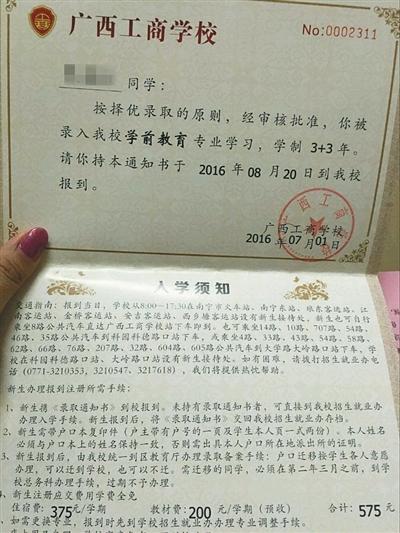 广西工商学校
No:0002311
同学：
按择优录取的原则，经审核批准，你被
录入我校学前教育专业学习，学制 3+3 年。
请你持本通知书于 2016 年 08 月 20 日到我校
报到。
广西工商学校
2016 年 07 月 01 日
入学须知
交通指南：报到当日，学校从8:00—17:30在南宁市火车站、南宁东站、埌东客运站、江
南客运站、金桥客运站、安吉客运站、西乡塘客运站设有新生接待处。新生也可自行
乘坐8路公共汽车直达广西工商学校站下车即到。也可乘坐14路、10路、707路、54路、
46路、35路公共汽车到科园科德路口站下车，或乘坐4路、33路、43路、54路、58路、
62路、66路、76路、207路、32路、604路、605路公共汽车到大学路大岭路口站下车，学
校在科园科德路口站、大岭路口站设有新生接待处。如有困难，请拨打招生就业办电
话（0771-3210353，3210547、3217618），我们将提供热忱帮助。
新生办理报到注册所需手续：
1、新生携《录取通知书》到校报到。未持有录取通知书者，可直接到我校招生就业办
办理入学手续。新生报到后，将《录取通知书》交回我校招生就业办存档。
2、新生需带户口本复印件（户主带有户号的一页及学生本人页一式两份）。本人姓名
必须与户口本上的姓名保持一致，否则需出具本人户口所在地派出所的证明。
3、新生报到后，由我校统一到区教育厅办理录取备案手续；户口迁移按学生各人意愿
办理，可以迁到学校，也可以不迁。需迁移的同学，必须在第二年三月之前，到学
校总务科办理手续，过期不予办理。
4、新生注册应交费用学费全免
住宿费：375元/学期 教材费：200 元/学期（预收） 合计：575 元
如需更换专业，报到时先到学校招生就业办办理专业调整手续。